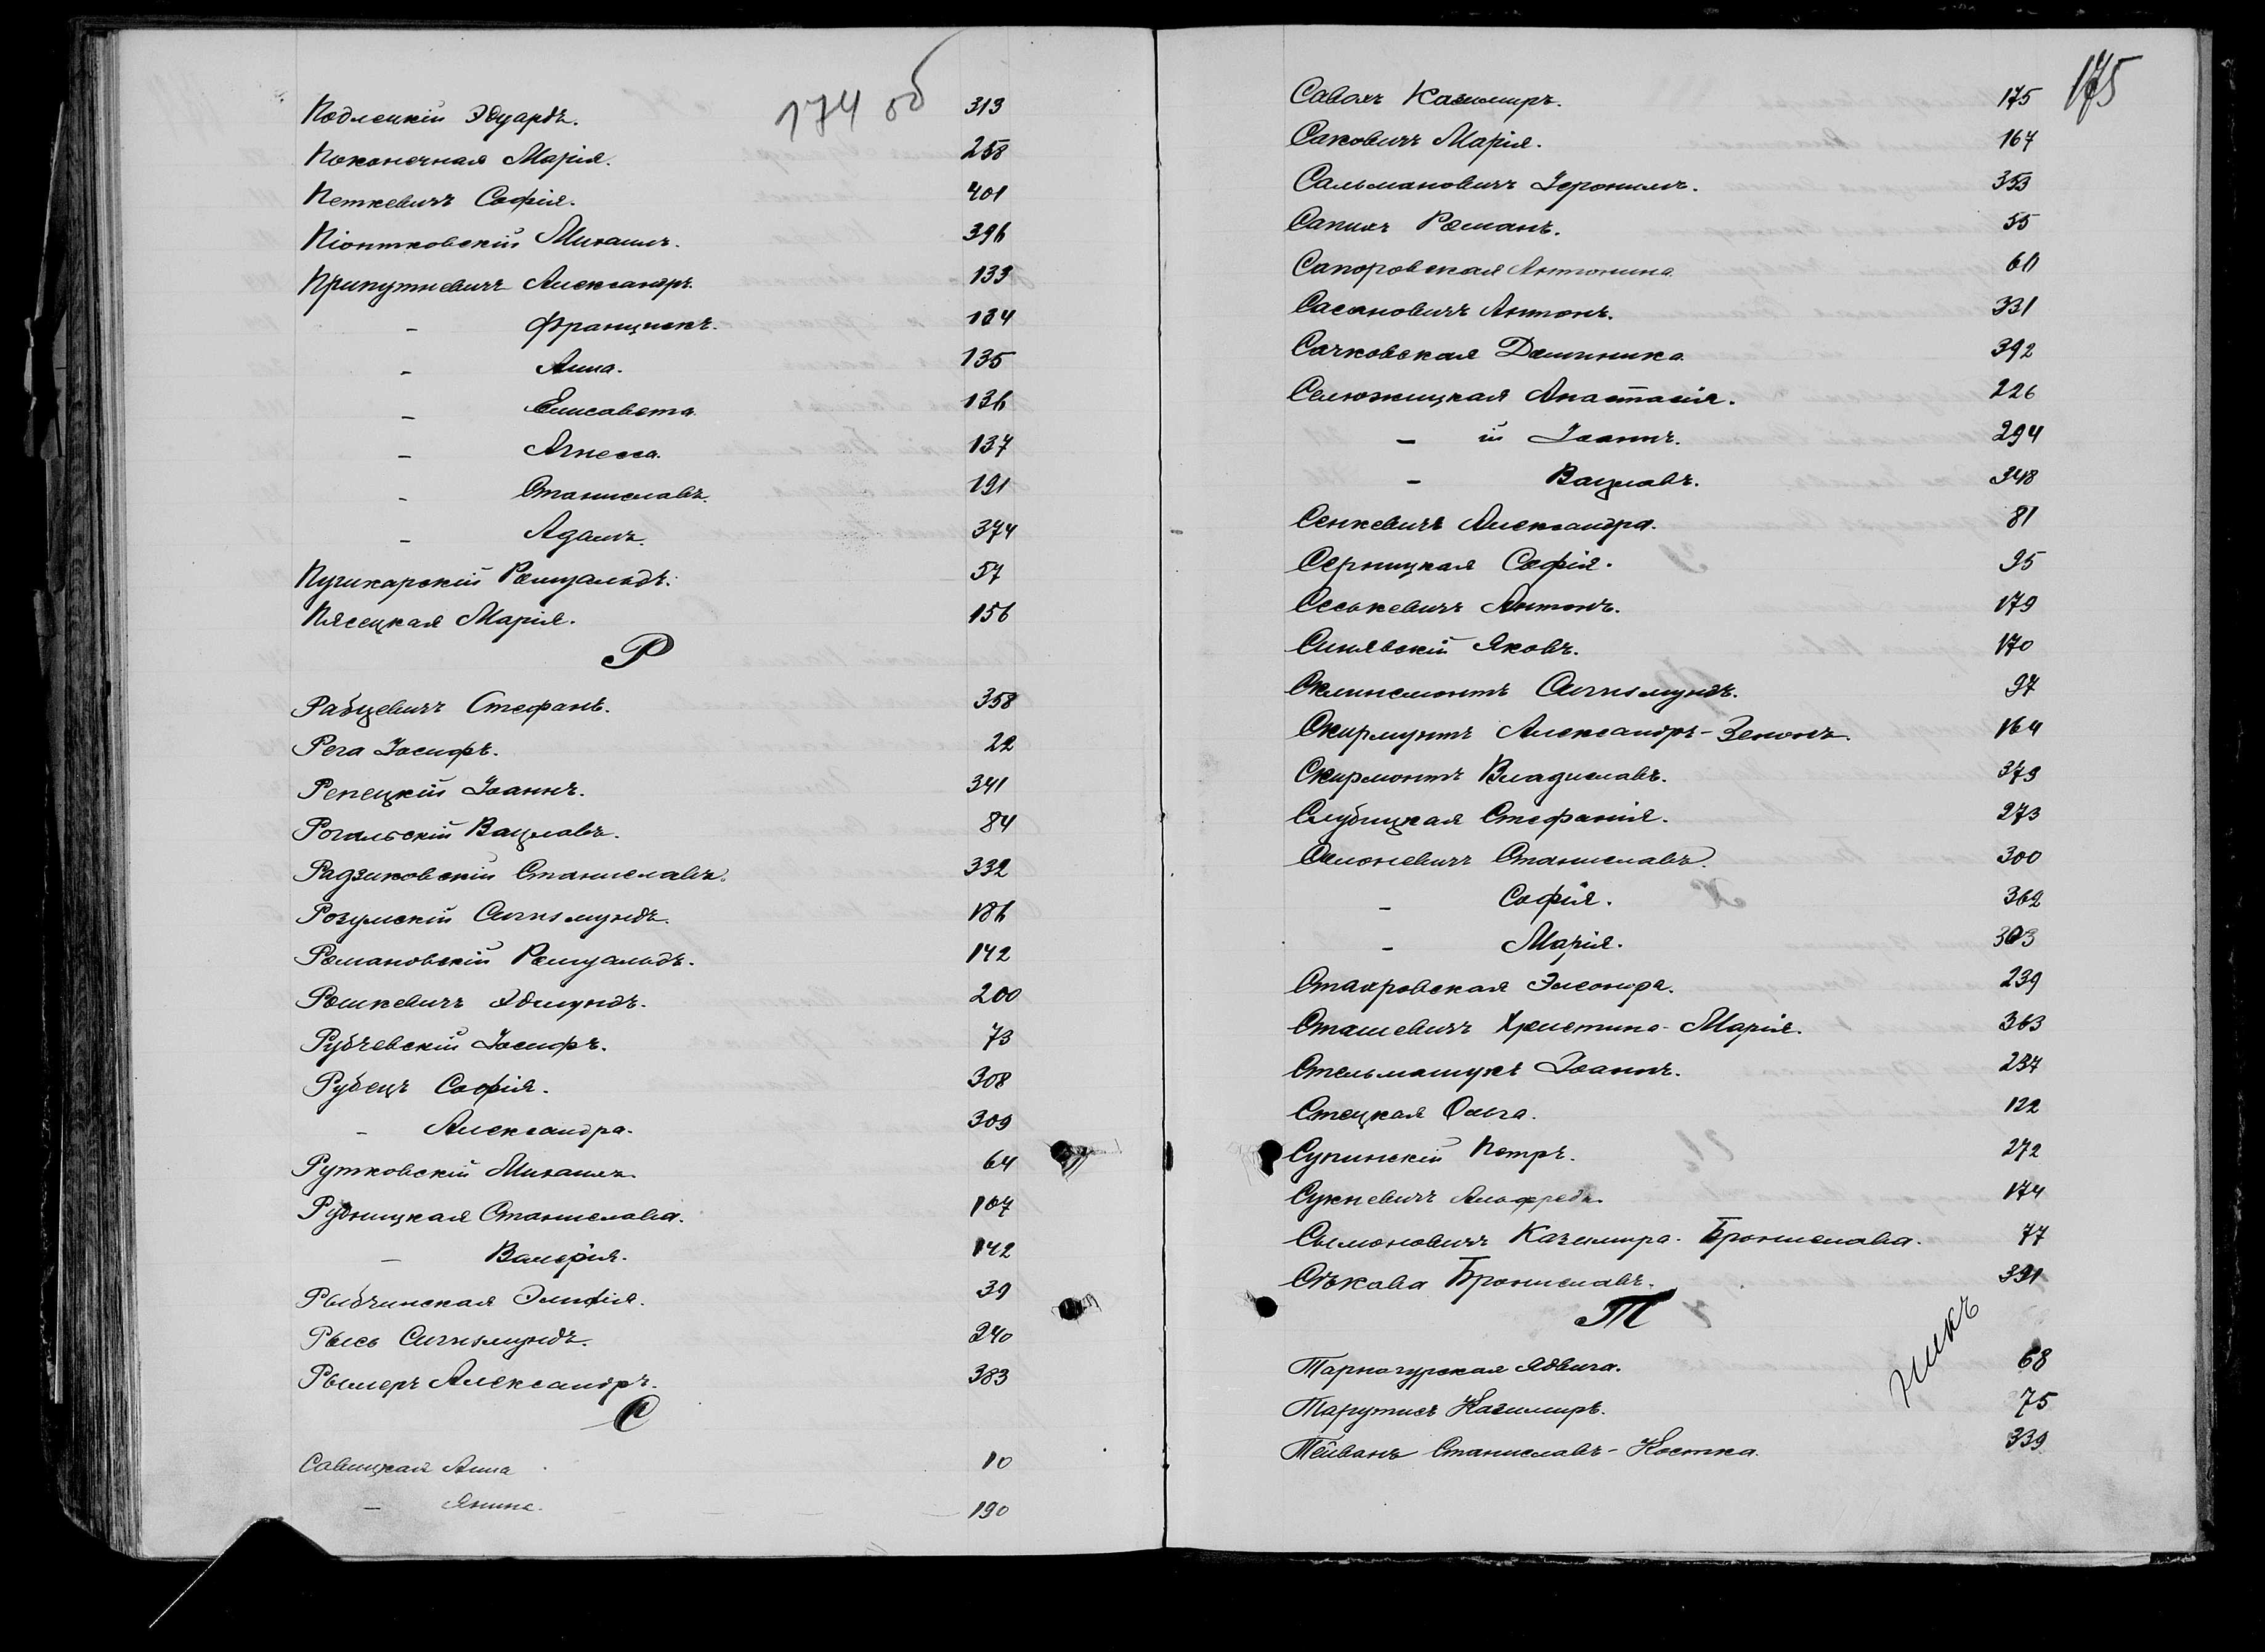 174 об
Подлецкій Эдуардъ. 313
Поконечная Марія. 258
Петкевичъ Софія. 401
Піонтковскій Михаилъ. 396
Припутневичъ Александръ. 133
- Францискъ. 134
- Анна. 135
- Елисавета 136
- Агнесса. 137
- Станиславъ. 191
- Адамъ. 374
Пушкарскій Ромуальдъ. 57
Пясецкая Марія. 156
Р
Рабцевичъ Стефанъ. 358
Рега Іосифъ. 22
Репецкій Іоаннъ. 341
Рогальскій Вацлавъ. 84
Радзиковскій Станиславъ. 332
Розумскій Сигизмундъ. 186
Романовскій Ромуальдъ. 142
Рошкевичъ Эдмундъ. 200
Рубчевскій Іосифъ. 73
Рубецъ Софія. 308
- Александра. 309
Рутковскій Михаилъ 64
Рудницкая Станислава. 107
- Валерія. 142
Рыбчинская Эмилія. 39
Рысь Сигизмундъ. 240
Рымеръ Александръ. 383
С
Савицкая Анна 10
- Янина. 190
175
Казимиръ. 175
Саковичъ Марія. 167
Сальмановичъ Іеронимъ. 353
Романъ. 55
Сапоровская Антонина 60
Сасиновичъ Антонъ. 331
Сачковская Доминика 392
Селюжицкая Анастасія. 226
- ій Іоаннъ. 294
- Вацлавъ. 348
Сенкевичъ Александра. 81
Серницкая Софія. 95
Сеськевичъ Антонъ. 179
Синявскій Яковъ. 170
Сигизмундъ. 97
Скирмунтъ Александръ-Зенонъ. 164
Скирмонтъ Владиславъ. 379
Слубицкая Стефанія. 273
Станиславъ. 300
- Софія. 362
- Марія. 303
Ставровская Элеонора. 239
Сташевичъ Христина-Марія. 363
Стельмашукъ Іоаннъ. 237
Стецкая Ольга. 122
Супинскій Петръ. 272
Сукневичъ Альфредъ. 174
Сымоновичъ Казимира-Бронислава. 77
Съкава Брониславъ. 391
Т
Тарногурская Ядвига. 68
Тарутисъ Казимиръ. 75
Тейванъ Станиславъ-Костка. 339